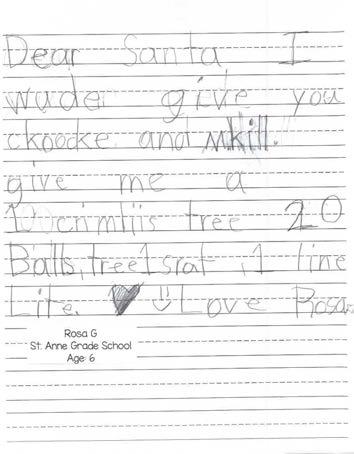 Dear Santa I
wude give you
ckoocke and mkill.
give me a
100crimtiis tree 20
Balls, tree 1 srat , 1 line
Lite. Love Rosa
Rosa G
St. Anne Grade School
Age: 6